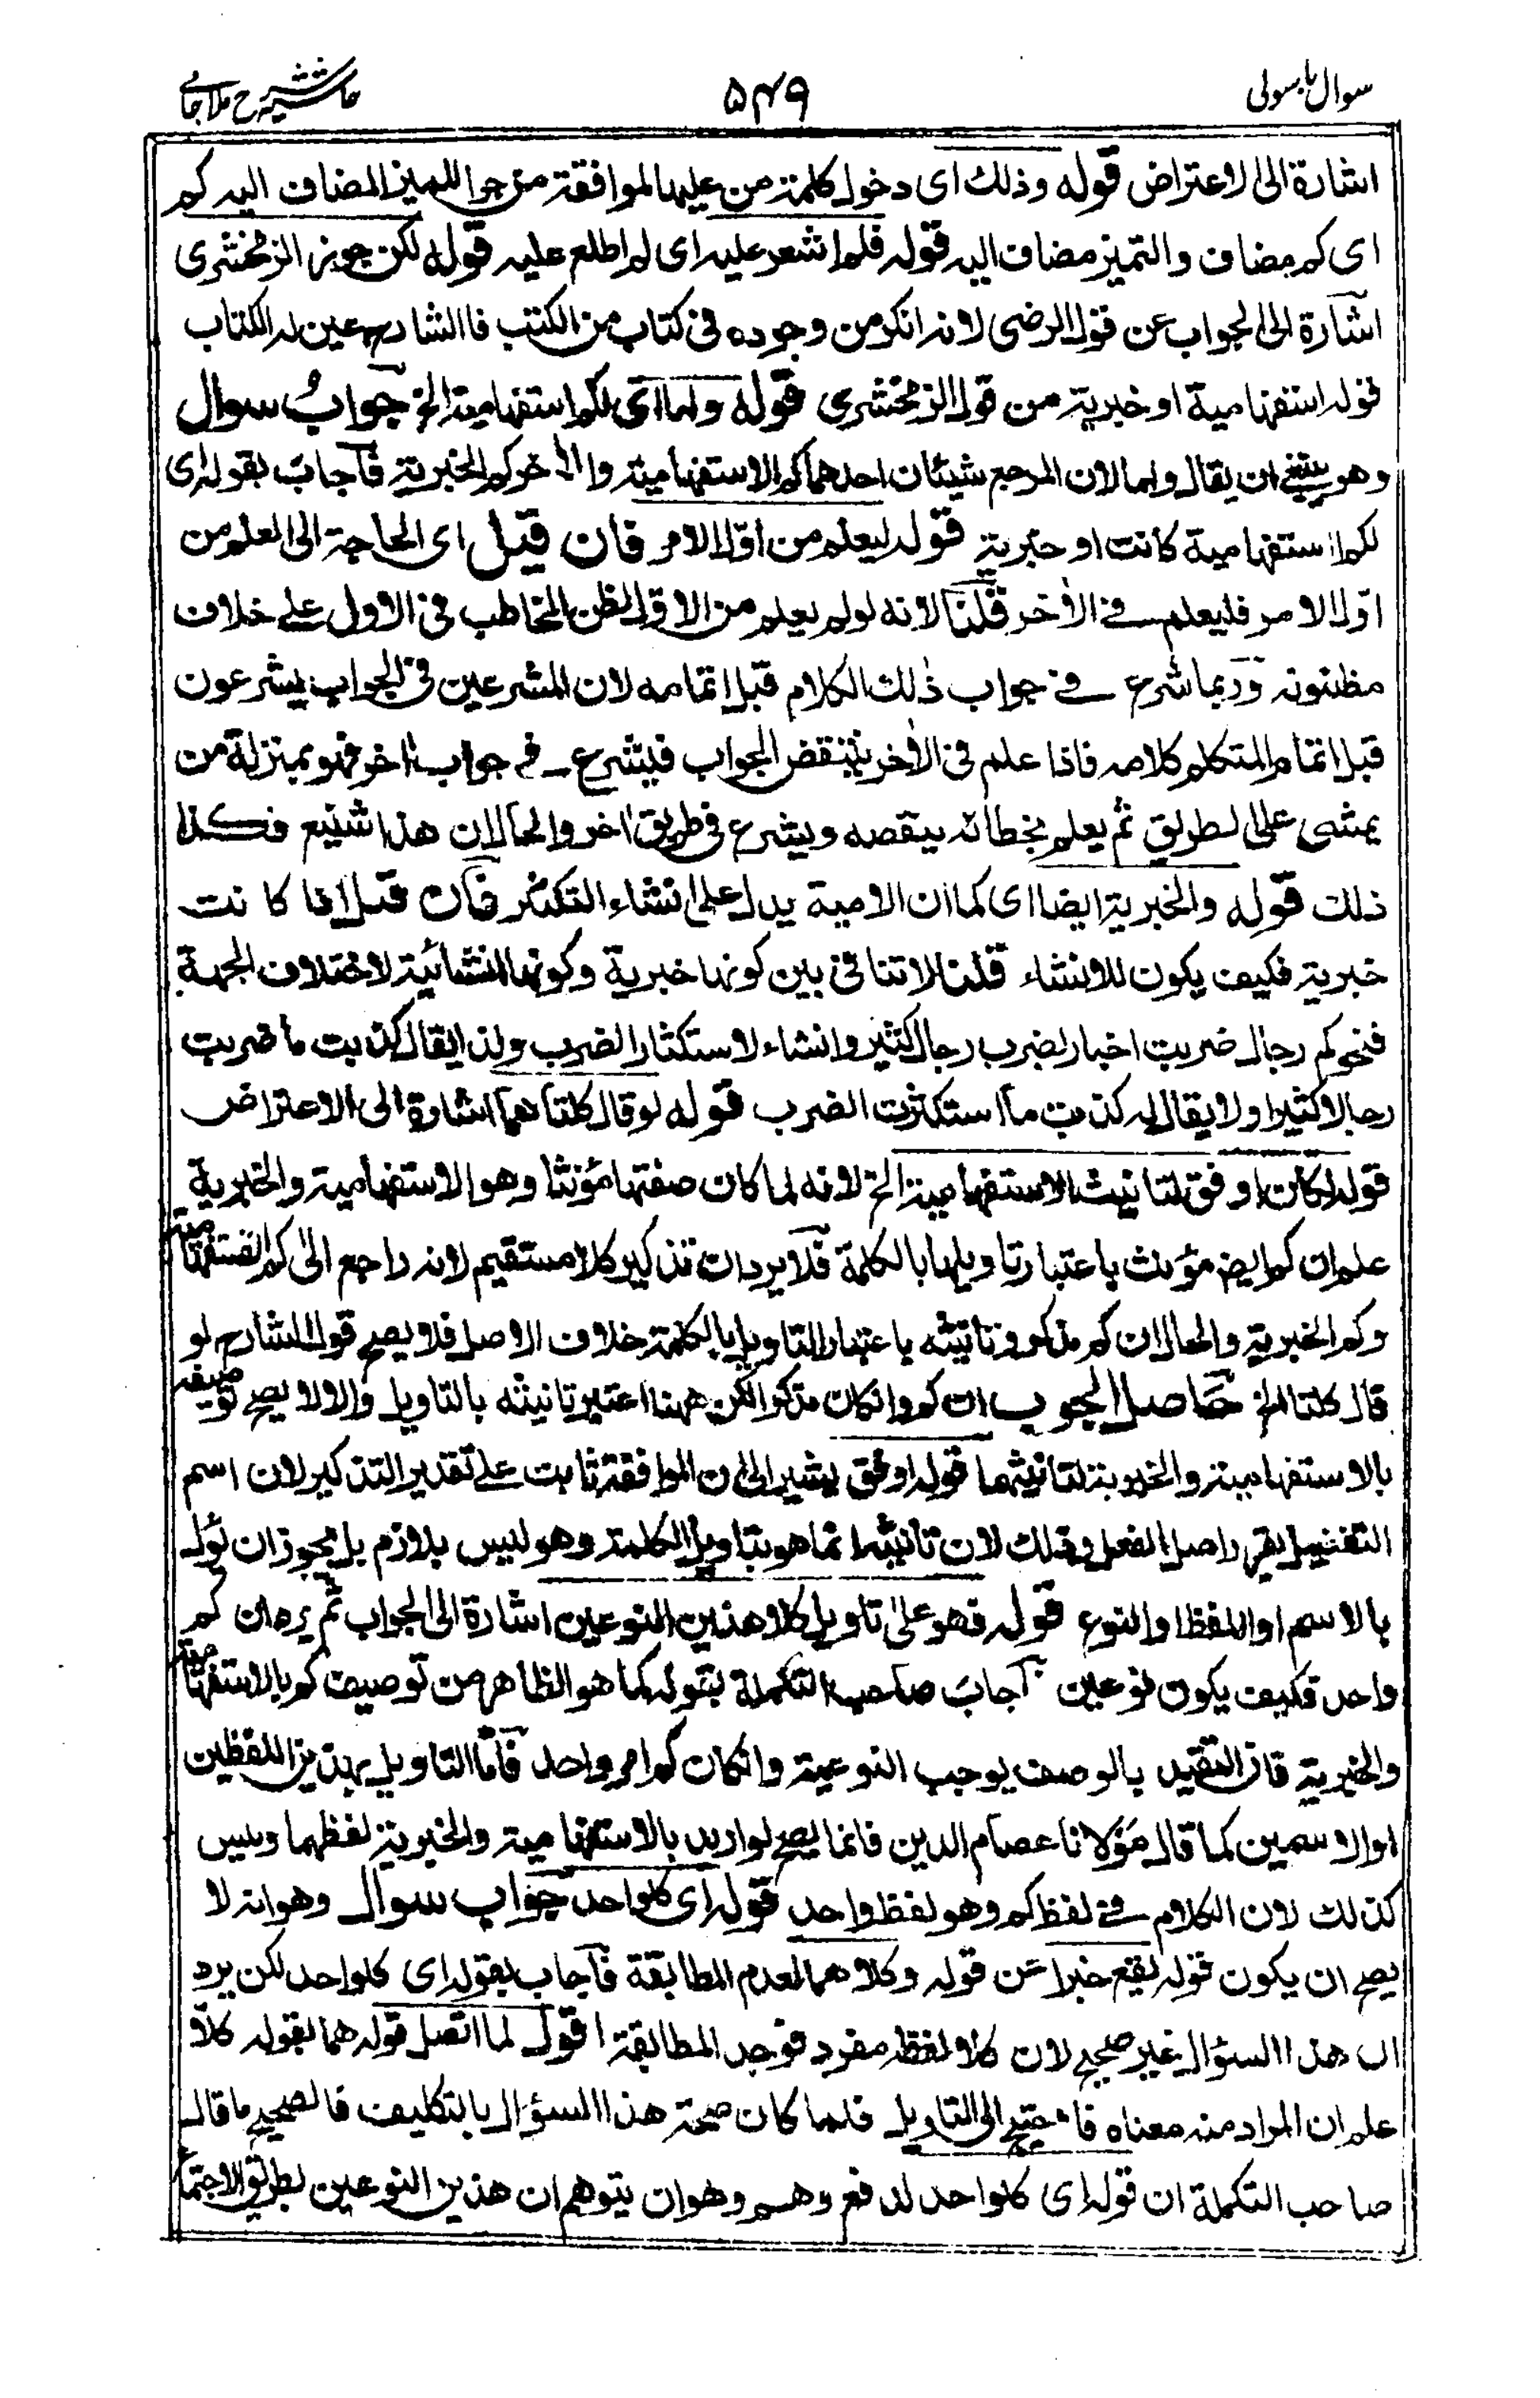 سوال باسولی
۵۴۹
حاشیه شرح ملا جامی
اشارة الى الاعتراض قوله وذلك اى دخول كلمة من عليها لموافقة من جر المميز المضاف اليه كم
اى كم مضاف والتميز مضاف اليه قوله فلم اشعر عليه اى لم اطلع عليه قوله لكن جوز الزمخشرى
اشارة الى الجواب عن قول الرضى لانه انكر من وجوده فى كتاب من الكتب فاالشارح عين له الكتاب
قوله استفهامية او خبرية من قول الزمخشرى قوله ولها اى لكم استفهامية الخ جواب سوال
وهو ينبغى ان يقال ولهما لان المرجع شيئان احدهما كم الاستفهامية والأخر كم الخبرية فاجاب بقوله اى
لكم استفهامية كانت او خبرية قوله ليعلم من اول الامر فان قيل اى الحاجة الى العلم من
اول الامر فليعلم فى الأخر قلنا لانه لو لم يعلم من الاول لظن المخاطب فى الاول على خلاف
مظنونه وربما شرع فى جواب ذلك الكلام قبل اتمامه لان المشرعين فى الجواب يشرعون
قبل اتمام المتكلم كلامه فاذا علم فى الأخر ينتقض الجواب فيشرع فى جواب اخر فهو بمنزلة من
يمشى على الطريق ثم يعلم بخطائه ينقصه ويشرع فى طريق اخر والحال ان هذا شنيع فكذا
ذلك قوله والخبرية ايضا اى كما ان الامية يدل على انشاء التكثير فان قيل اذا كانت
خبرية فكيف يكون للانشاء قلنا لا تنافى بين كونها خبرية وكونها انشائية لاختلاف الجهة
فنحو كم رجال ضربت اخبار لضرب رجال كثير وانشاء لاستكثار الضرب ولذا يقال كذبت ما ضربت
رجالا كثيرا ولا يقال له كذبت ما استكثرت الضرب قوله لو قال كلتاهما اشارة الى الاعتراض
قوله لكان اوفق لتانيث الاستفهامية الخ لانه لما كان صفتها مؤنثا وهو الاستفهامية والخبرية
علم ان كم ايض مؤنث باعتبار تاويلها بالكلمة فلا يرد ان تذكير كلا مستقيم لانه راجع الى كم استفهامية
وكم الخبرية والحال ان كم مذكر وتانيثه باعتبار التاويل بالكلمة خلاف الاصل فلا يصح قول الشارح لو
قال كلتا الخ حاصل الجوب ان كم وان كان مذكرا لكن ههنا اعتبر تانيثه بالتاويل والا لا يصح توصيفه
بالاستفهامية والخبرية لتانيثهما قوله اوفق يشير الى ان الموافقة ثابت على تقدير التذكير لان اسم
التفضيل يقرر اصل الفعل وذلك لان تانيثه انما هو بتاويل الكلمة وهو ليس بلازم بل يجوز ان يؤل
بالاسم او اللفظ او النوع قوله فهو على تاويل كلا هذين النوعين اشارة الى الجواب ثم يرد ان كم
واحد فكيف يكون نوعين اجاب صاحب التكملة بقوله كما هو الظاهر من توصيف كم بالاستفهامية
والخبرية فان التقييد بالوصف يوجب النوعية وان كان كم امر واحد فاما التاويل بهذين اللفظين
او الاسمين كما قال مولانا عصام الدين فانما يصح لو اريد بالاستفهامية والخبرية لفظهما وليس
كذلك لان الكلام فى لفظ كم وهو لفظ واحد قوله اى كلواحد جواب سوال وهو انه لا
يصح ان يكون قوله يقع خبرا عن قوله وكلاهما لعدم المطابقة فاجاب بقوله اى كلواحد لكن يرد
ان هذا السؤال غير صحيح لان كلا لفظه مفرد فوجد المطابقة اقول لما اتصل قوله هما بقوله كلا
علم ان المراد منه معناه فاحتيج الى التاويل فلما كان صحة هذا السؤال بالتكليف فالصحيح ما قال
صاحب التكملة ان قوله اى كلواحد لدفع وهم وهو ان يتوهم ان هذين النوعين بطريق الاجتماع